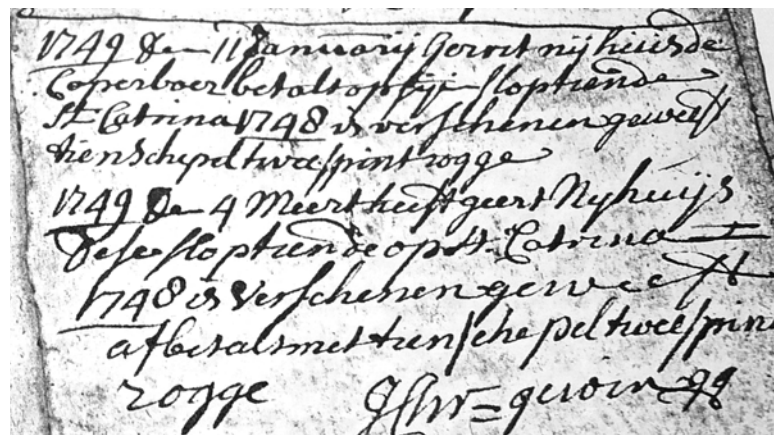 1749 de 11 Januarij Gerrit nijhuis de
Coperboer betalt op sijn sloptiende
St Catrina 1748 is verschenen geweest
tien schepel twee spint rogge
1749 de 4 Meert heeft geert Nyhuijs
dese sloptiende op st. Catrina
1748 is verschenen geweest
afbetalt met tien schepel twee spin
rogge